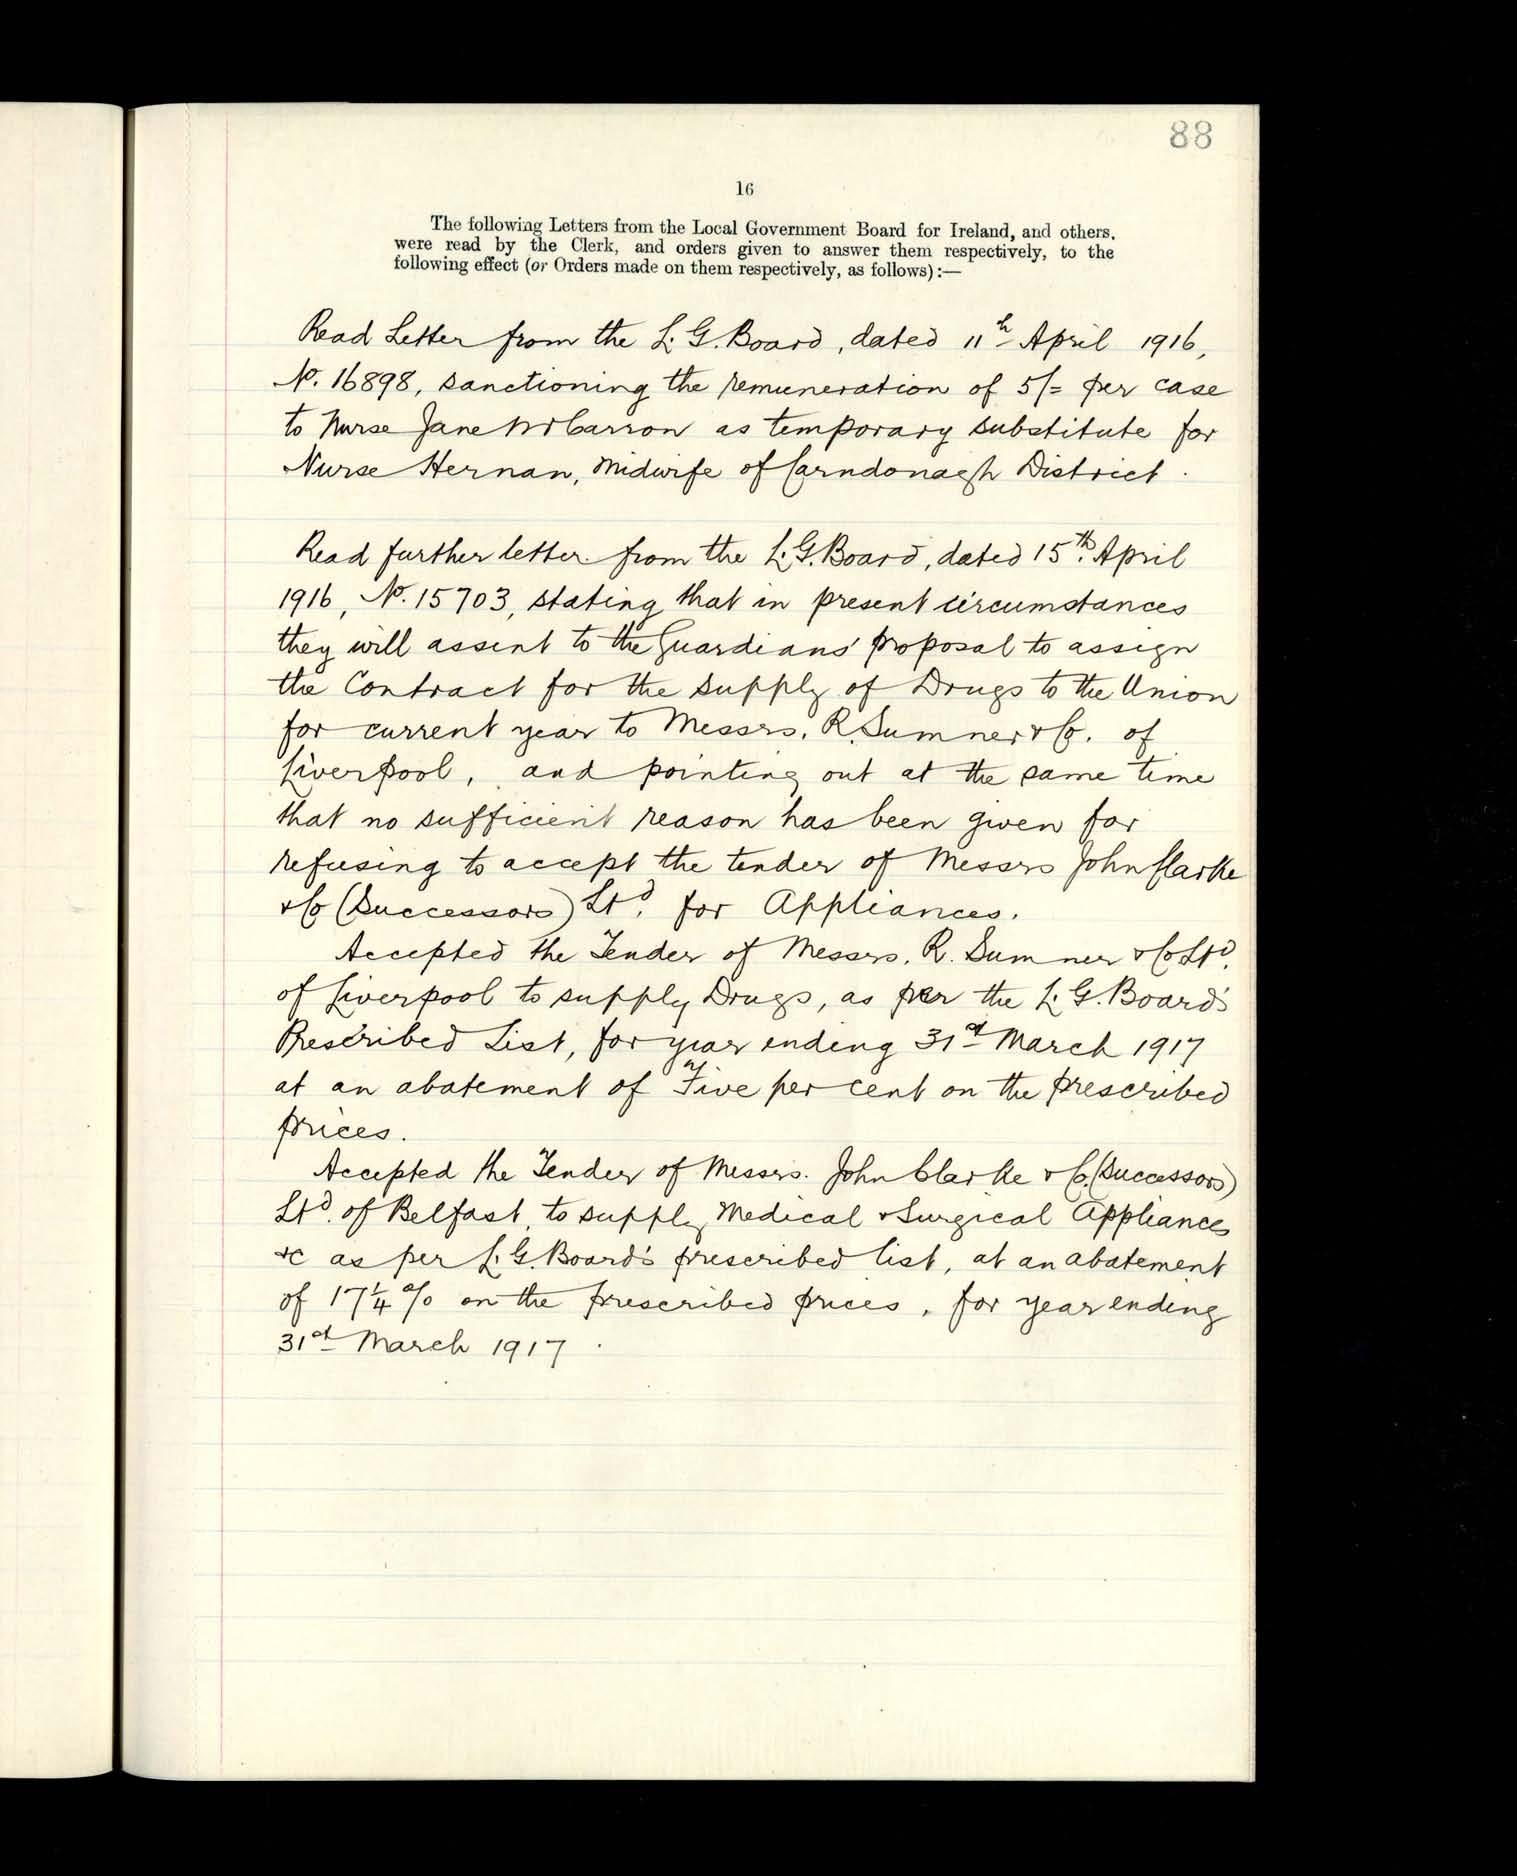 88
16
The following Letters from the Local Government Board for Ireland, and others,
were read by the Clerk, and orders given to answer them respectively, to the
following effect (or Orders made on them respectively, as follows):—
Read Letter from the L. G. Board, dated 11th April 1916,
No. 16898, sanctioning the remuneration of 5/= per case
to Nurse Jane McCarron as temporary substitute for
Nurse Hernan, Midwife of Carndonagh District.
Read further letter from the L. G. Board, dated 15th April
1916, No. 15703, stating that in present circumstances
they will assent to the Guardians' proposal to assign
the Contract for the supply of Drugs to the Union
for current year to Messrs. R. Sumner & Co. of
Liverpool, and pointing out at the same time
that no sufficient reason has been given for
refusing to accept the tender of Messrs John Clarke
& Co (Successors) Ltd. for Appliances.
Accepted the Tender of Messrs. R. Sumner & Co Ltd.
of Liverpool to supply Drugs, as per the L. G. Board's
Prescribed List, for year ending 31st March 1917
at an abatement of Five per cent on the prescribed
prices.
Accepted the Tender of Messrs. John Clarke & Co. (Successors)
Ltd. of Belfast, to supply Medical & Surgical Appliances
&c as per L. G. Board's prescribed list, at an abatement
of 17¼ % on the prescribed prices, for year ending
31st March 1917.